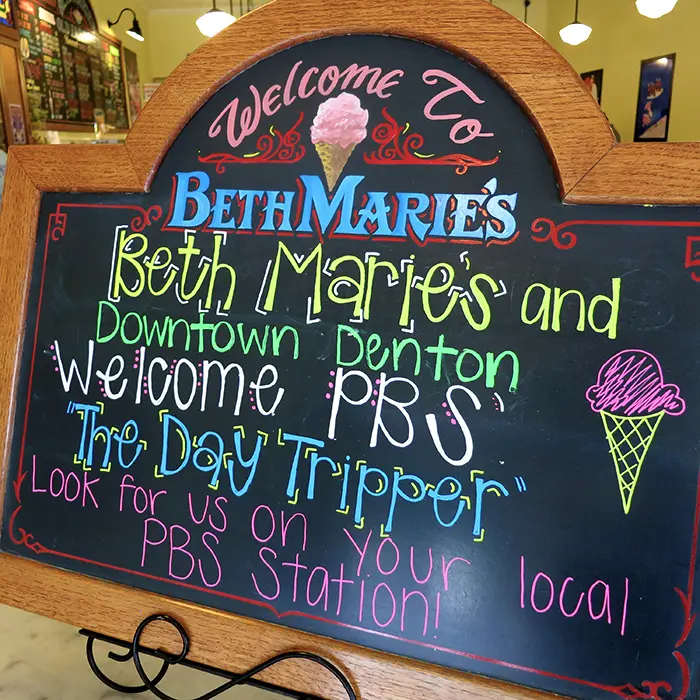 Welcome To
BETH MARIE'S
Beth Marie's and
Downtown Denton
Welcome PBS'
"The Day Tripper"
Look for us on your local
PBS Station!